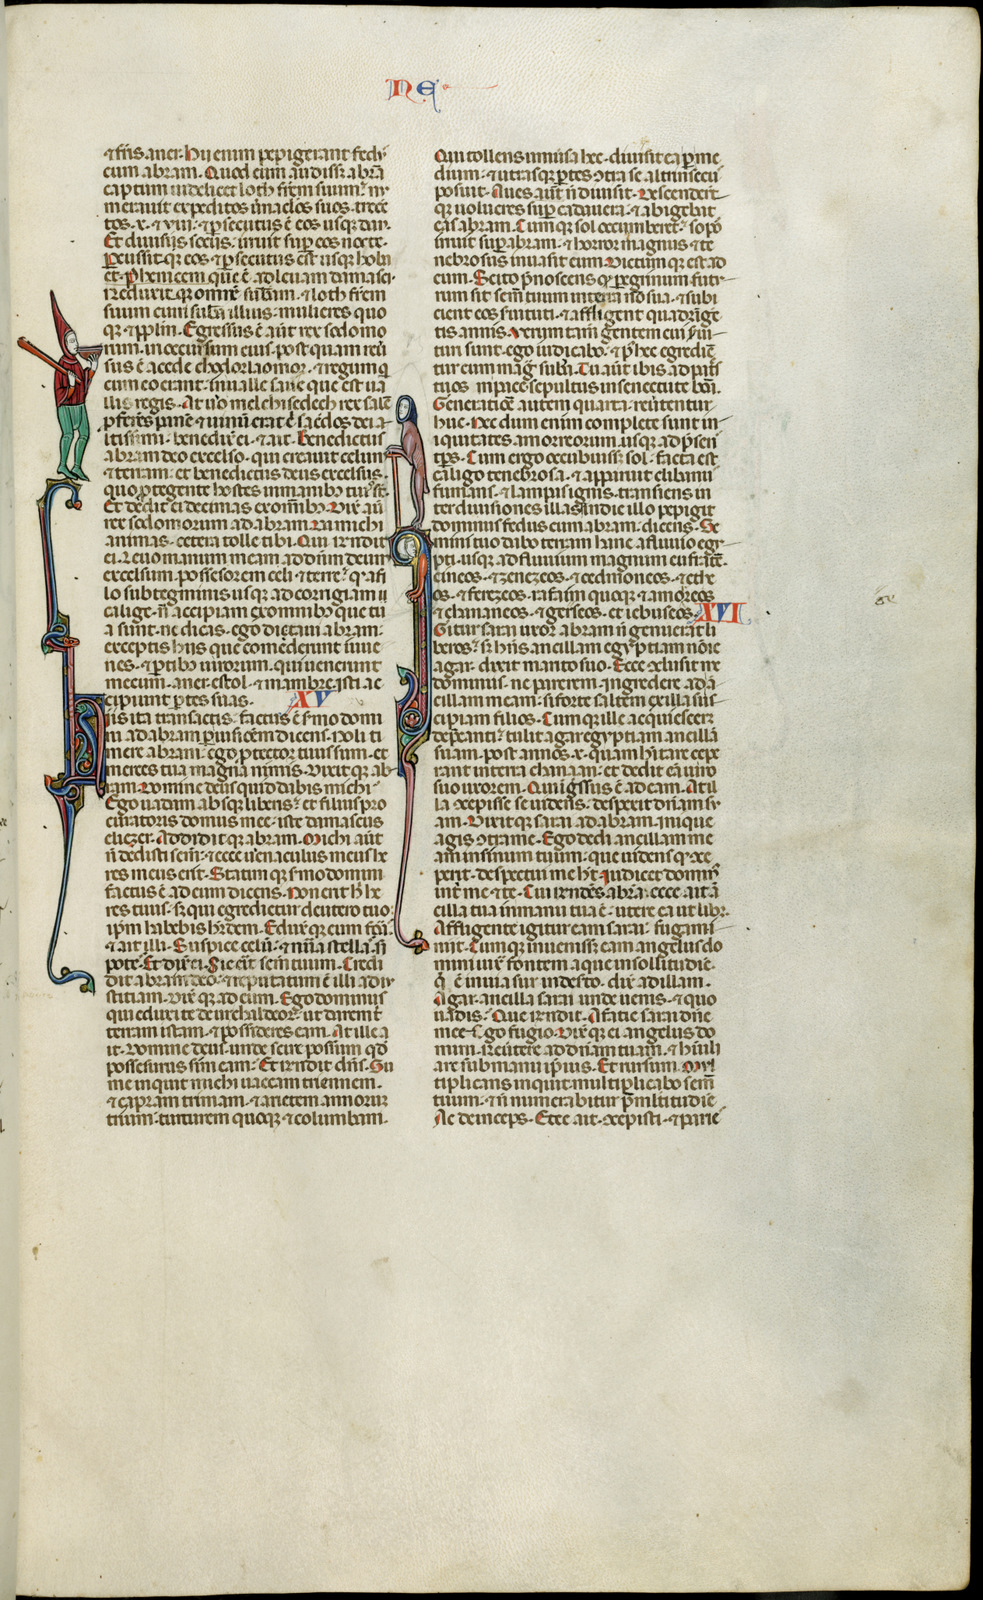 NE
& fr̃is aner. Hii enim pepigerant fed9
cum abram. Quod cum audiss& abrã
captum uidelicet loth fr̃em suum: nu
merauit expeditos u̾naclos suos. trece
tos. x. & viii. & p̱secutus ẽ eos usq; dan.
Et diuisis sociis. irruit sup̱ eos nocte.
P̱cussit q; eos & p̱secutus est usq; hoba
et. Phenicem que ẽ ad leuam damasci.
Reduxit q; omnẽ sub̃am. & loth fr̃em
suum cum sub̃a illius. mulieres quo
q; & pp̃lm. Egressus ẽ aut̃ rex sodomo
rum. in occursum eius. post quam reu̾
sus ẽ a cede chodorlaomor. & regum q
cum eo erant. in ualle saue que est ua
llis regis. At uo̾ melchisedech rex salẽ
p̱ferẽs panẽ & uinũ. erat ẽ sac̾dos dei a
ltissimi. benedix̃ ei. & ait. Benedictus
abram deo excelso. qui creauit celum
& terram. et benedictus deus excelsus.
quo p̱tegente hostes in manibȝ tuis st̃.
Et dedit ei decimas ex omibȝ. Dix̃ aũ
rex sodomorum ad abram. Da michi
animas. cetera tolle tibi. Qui irndit
ei. Leuo manum meam ad dñm deum
excelsum. possessorem celi & terre. q̾ a fi
lo subtegminis usq; ad corrigiam
calige. ñ accipiam ex omnibȝ que tu
a sunt. ne dicas. ego ditaui abram.
exceptis hiis que comederunt iuue
nes. & p̱tibȝ uirorum. qui uenerunt
mecum. aner. escol. & mambre. isti ac
cipiunt p̱tes suas. XV
Hiis ita transactis. factus ẽ s̾mo domi
ni ad abram p̱ uisiõem dicens. Noli ti
mere abram. ego p̱tector tuus sum. et
merces tua magna nimis. Dixit q; ab
ram. Domine deus quid dabis michi.
Ego uadam absq; liberis. et filius pro
curatoris domus mee. iste damascus
eliezer. Addidit q; abram. Michi aũt
ñ dedisti sem̃. & ecce u̾naculus meus he
res meus erit. Statim q; s̾mo domini
factus ẽ ad eum dicens. Non erit h̾ he
res tuus. s; qui egredietur de utero tuo
ip̃m habebis h̾dem. Eduxit q; eum foras
& ait illi. Suspice celũ. & num̾a stellas si
potes. Et dix̃ ei. Sic erit sem̃ tuum. Credi
dit abram deo. & reputatum ẽ illi ad iu
stitiam. Dix̃ q; ad eum. Ego dominus
qui eduxi te de ur chaldeor̃. ut darem t̾
terram istam. & possideres eam. At ille a
it. Domine deus. unde scire possum qd̾
possessurus sim eam. Et irndit dñs. Su
me inquit michi uaccam triennem.
& capram trimam. & arietem annorum
trium. turturem quoq; & columbam.
Qui tollens uniu̾sa hec. diuisit ea p̱ me
dium. & utrasq; p̱tes ɔtra se altrinsecus
posuit. Aues aut̃ ñ diuisit. Descender̃t
q; uolucres sup̱ cadauera. & abigebat
eas abram. Cum q; sol occumberet. sopor
irruit sup̱ abram. & horror magnus & te
nebrosus inuasit eum. Dictum q; est ad
eum. Scito p̾noscens q; p̱egrinum futu
rum sit sem̃ tuum in terra nõ sua. & subi
cient eos s̾uituti. & affligent quadringẽ
tis annis. Verum tam̃ gentem cui s̾ui
turi sunt. ego iudicabo. & p̾ hec egredie
tur cum mag̾ sub̃a. Tu aut̃ ibis ad pat̃s
tuos in pace. sepultus in senectute bo̾a.
Generatiõe autem quarta. reu̾tentur
huc. Nec dum enim complete sunt in
iquitates amorreorum. usq; ad p̾sens
tp̃s. Cum ergo occubuiss& sol. facta est
caligo tenebrosa. & apparuit clibanus
fumans. & lampas ignis. transiens in
ter diuisiones illas. In die illo pepigit
dominus fedus cum abram. dicens. Se
mini tuo dabo terram hanc. a fluuio egy
pti. usq; ad fluuium magnum eufratẽ.
cineos. & zenezeos. & cedmoneos. & ethe
os. & ferezeos. rafaim quoq; & amoreos
& chananeos. & gerseos. et iebuseos. XVI
Igitur sarai uxor abram ñ genuerat li
beros. s; hñs ancillam egyptiam nõie
agar. dixit marito suo. Ecce ɔclusit me
dominus. ne parerem. ingredere ad a
cillam meam. si forte saltem ex illa sus
cipiam filios. Cum q; ille acquiescer&
dep̱canti. tulit agar egyptiam ancillã
suam. post annos. x. quam h̾itare cepe
rant in terra chanaan. et dedit eã uiro
suo uxorem. Qui ig̃ssus ẽ ad eam. At il
la ɔcepisse se uidens. despexit dñam su
am. Dixit q; sarai ad abram. inique
agis ɔtra me. Ego dedi ancillam me
am in sinum tuum. que uidens q̾ ɔce
perit. despectui me h̾t. Iudicet domin9
int̾ me & te. Cui irndẽs abrã. ecce ait ã
cilla tua in manu tua ẽ. utere ea ut lib&.
Affligente igitur eam sarai. fugam i
niit. Cum q; inuenisset eam angelus do
mini iux̃ fontem aque in sollitudie.
q̾ ẽ in uia sur in des̾to. dix̃ ad illam.
Agar ancilla sarai unde uenis. & quo
uadis. Que irndit. A facie sarai dñe
mee ego fugio. Dix̃ q; ei angelus do
mini. reu̾tere ad dñam tuam. & humili
are sub manu ip̱ius. Et rursum. Mul
tiplicans inquit multiplicabo sem̃
tuum. & ñ numerabitur p̾ mltitudie.
Ac deinceps. Ecce ait. ɔcepisti. & parie